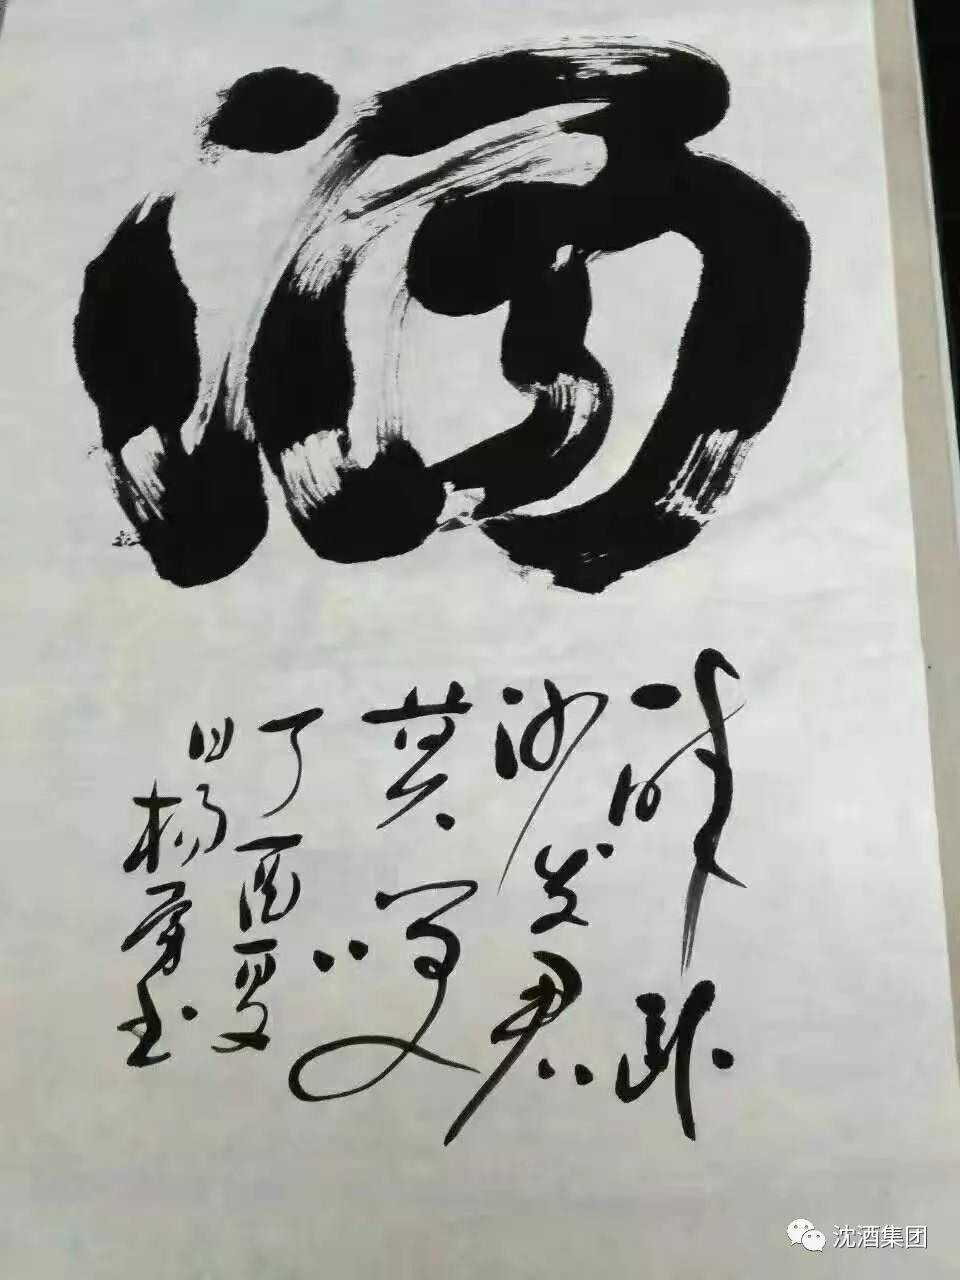 酒
醉卧
沙场君
莫笑
丁酉夏
日杨勇书
沈酒集团